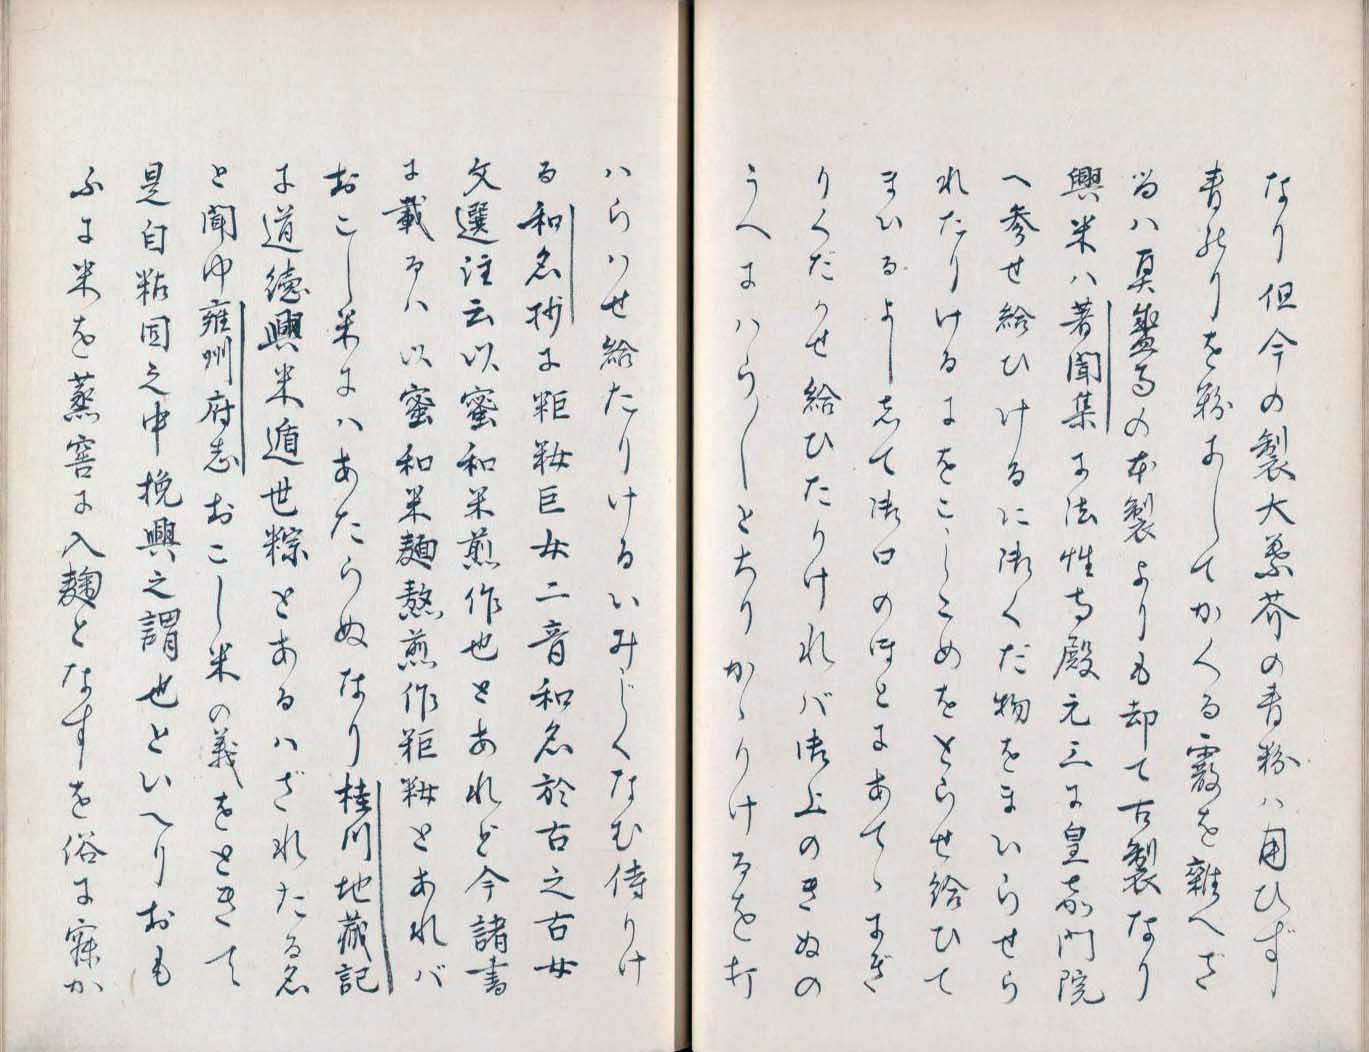 なり但今の製大蔘芥の青粉ハ用ひず
青のりを粉にしてかくる霰を雜へざ
るハ眞盛るの本製よりも却て古製なり
興米ハ著聞集に法性寺殿元三に皇嘉門院
へ參せ給ひけるに御くだ物をまいらせら
れたりけるにをこしこめをとらせ給ひて
まひるよしして御口のほとにあてゝにぎ
りくだかせ給ひたりけれバ御上のきぬの
うへにハら〳〵とちりかゝりけるを打
ハらハせ給たりけるいみじくなむ侍りけ
る和名抄に粔籹巨女二音和名於古之古女
文選注云以蜜和米煎作也とあれど今諸書
に載るハ以蜜和米麺熬煎作粔籹とあれバ
おこし米にハあたらぬなり桂川地蔵記
に道徳興米遁世粽とあるハざれたる名
と聞ゆ雍州府志おこし米の義をときて
是自粘固之中挽興之謂也といへりおも
ふに米を蒸窖に入麹となすを俗に寐か